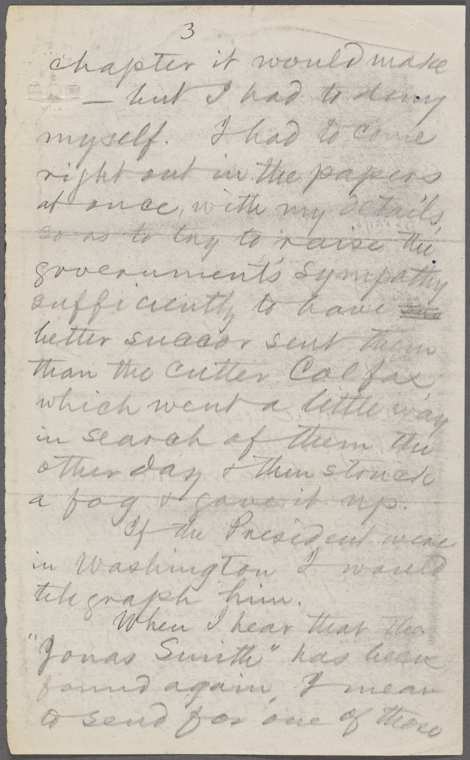 3
chapter it would make
— but I had to deny
myself. I had to come
right out in the papers
at once, with my details,
so as to try to raise the
government's sympathy
sufficiently to have
better succor sent them
than the cutter Colfax
which went a little way
in search of them the
other day & then struck
a fog & gave it up.
If the President were
in Washington I would
telegraph him.
When I hear that the
"Jonas Smith" has been
found again, I mean
to send for one of those